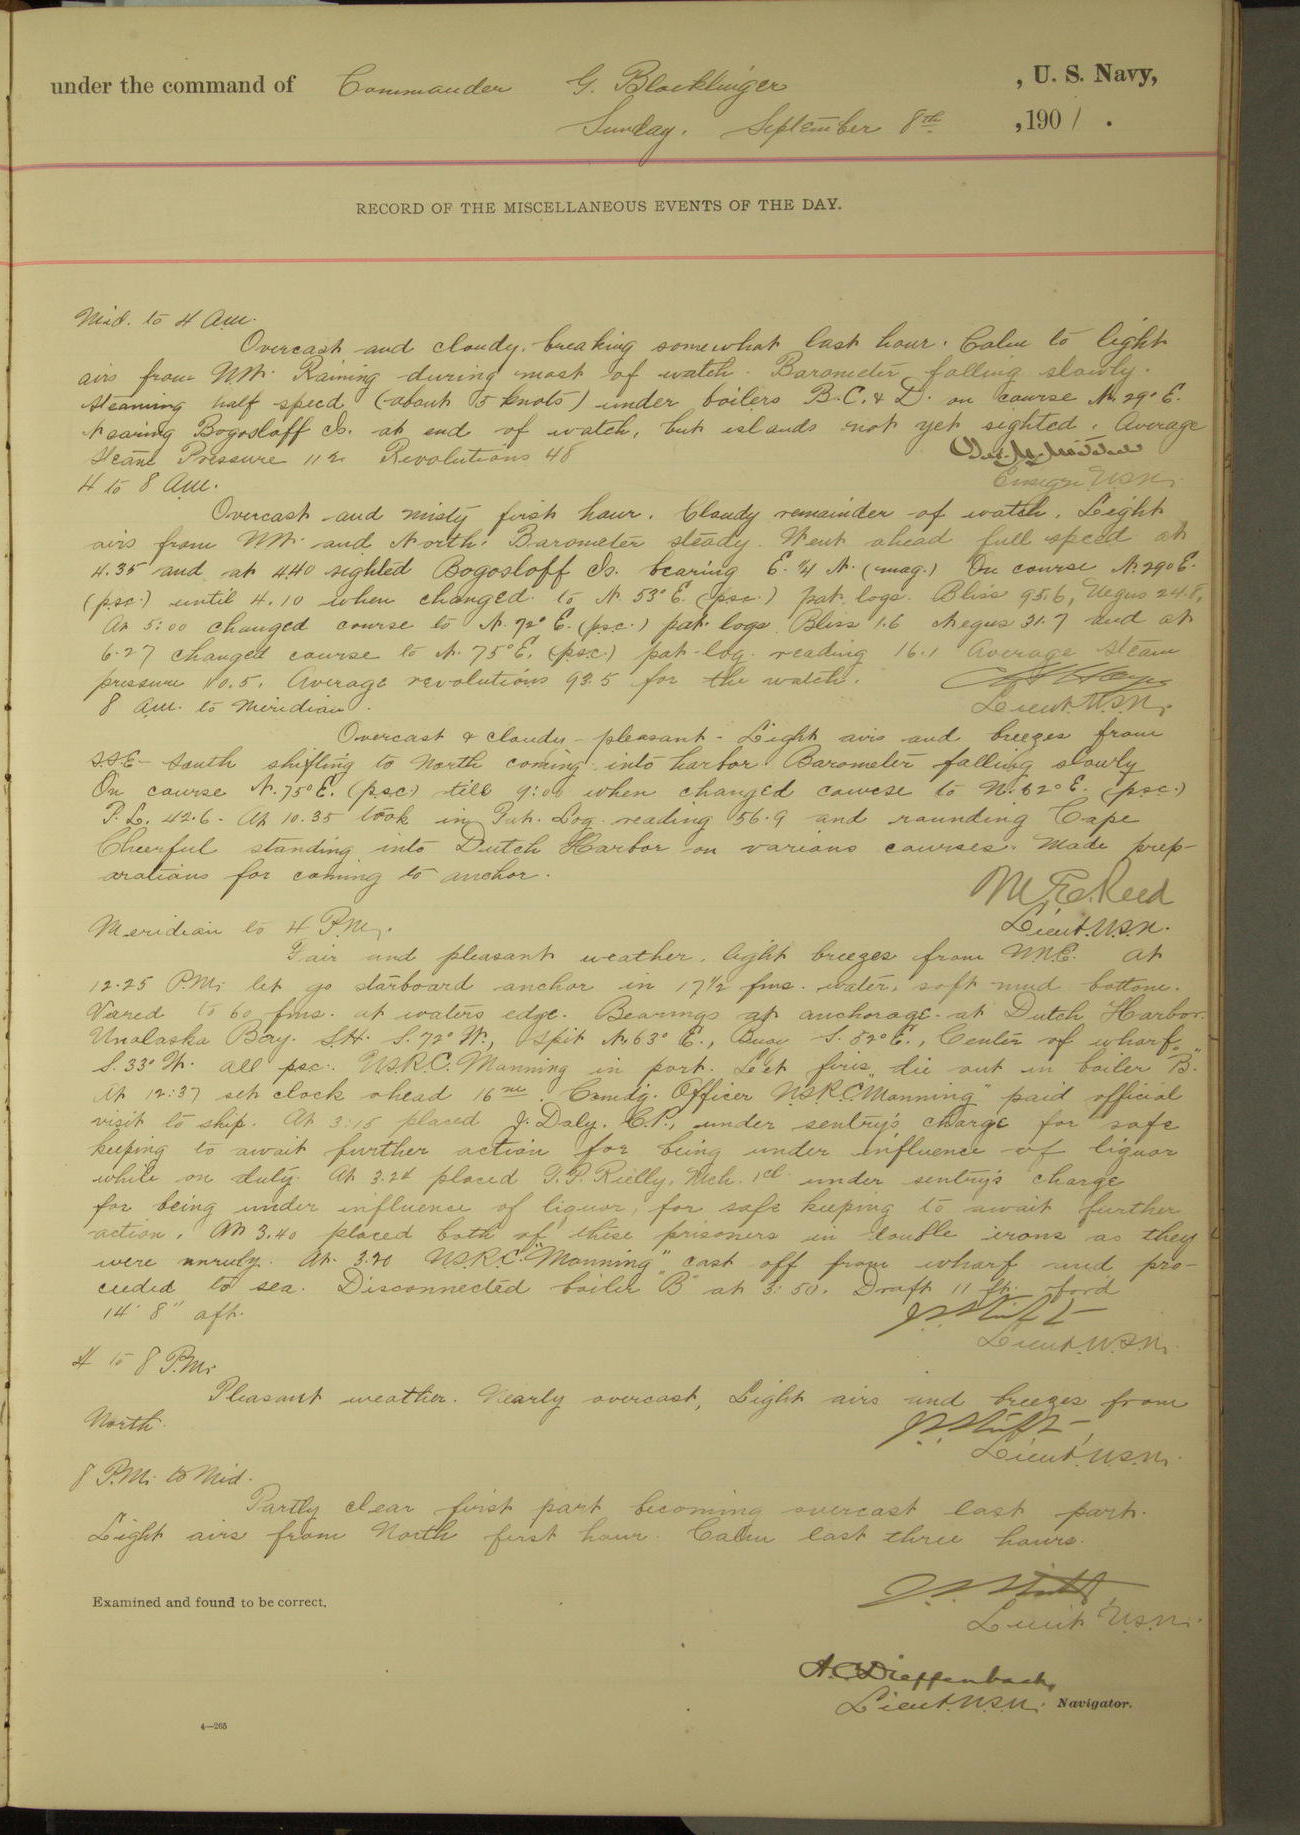 under the command of Commander G. Blocklinger , U. S. Navy,
Sunday. September 8th , 1901 .
RECORD OF THE MISCELLANEOUS EVENTS OF THE DAY.
Mid. to 4 A.M.
Overcast and cloudy, breaking somewhat last hour. Calm to light
airs from NW. Raining during most of watch. Barometer falling slowly.
Steaming half speed (about 5 knots) under boilers B. C. & D. on course N. 29° E.
Nearing Bogosloff Is. at end of watch, but islands not yet sighted. Average
Steam Pressure 112. Revolutions 48
Ensign U.S.N.
4 to 8 A.M.
Overcast and misty first hour. Cloudy remainder of watch. Light
airs from NW. and North. Barometer steady. Went ahead full speed at
4.35 and at 4.40 sighted Bogosloff Is. bearing E. ¼ N. (mag.) On course N. 29° E.
(p.s.c.) until 4.10 when changed to N. 53° E. (p.s.c.) pat. logs. Bliss 95.6, Negus 24.8,
At 5:00 changed course to N. 72° E. (p.s.c.) pat. logs Bliss 1.6 Negus 31.7 and at
6.27 changed course to N. 75° E. (p.s.c.) pat-log. reading 16.1 Average steam
pressure 110.5. Average revolutions 93.5 for the watch.
Lieut. U.S.N.
8 A.M. to Meridian.
Overcast & cloudy - pleasant - Light airs and breezes from
SSE - South shifting to North coming into harbor Barometer falling slowly
On course N. 75° E. (p.s.c.) till 9:00 when changed course to N. 62° E. (p.s.c.)
P. L. 42.6 - At 10.35 took in Pat. Log reading 56.9 and rounding Cape
Cheerful standing into Dutch Harbor on various courses. Made prep-
arations for coming to anchor.
M. E. Reed
Lieut. U.S.N.
Meridian to 4 P.M.
Fair and pleasant weather, light breezes from NNE. At
12.25 P.M. let go starboard anchor in 17½ fms. water, soft mud bottom.
Veered to 60 fms. at waters edge. Bearings at anchorage at Dutch Harbor.
Unalaska Bay. S.H. S. 72° W., Spit N. 63° E., Buoy S. 52° E., Center of wharf
S. 33° W. all psc. U.S.R.C. Manning in port. Let fires die out in boiler "B".
At 12:37 set clock ahead 16 m. Comdg. Officer U.S.R.C. "Manning" paid official
visit to ship. At 3:15 placed J. Daly. C.P., under sentry's charge for safe
keeping to await further action for being under influence of liquor
while on duty. At 3.24 placed T. P. Rielly, Mch. 1cl under sentry's charge
for being under influence of liquor, for safe keeping to await further
action. At 3.40 placed both of these prisoners in double irons as they
were unruly. At 3.20 U.S.R.C. "Manning" cast off from wharf and pro-
ceeded to sea. Disconnected boiler "B" at 3:50. Draft 11 ft. ford
14' 8" aft.
Lieut. U.S.N.
4 to 8 P.M.
Pleasant weather. Nearly overcast, Light airs and breezes from
North.
Lieut. U.S.N.
8 P.M. to Mid.
Partly clear first part becoming overcast last part.
Light airs from North first hour. Calm last three hours.
Lieut U.S.N.
Examined and found to be correct.
A. C. Dieffenbach,
Lieut. U.S.N. Navigator.
4—265